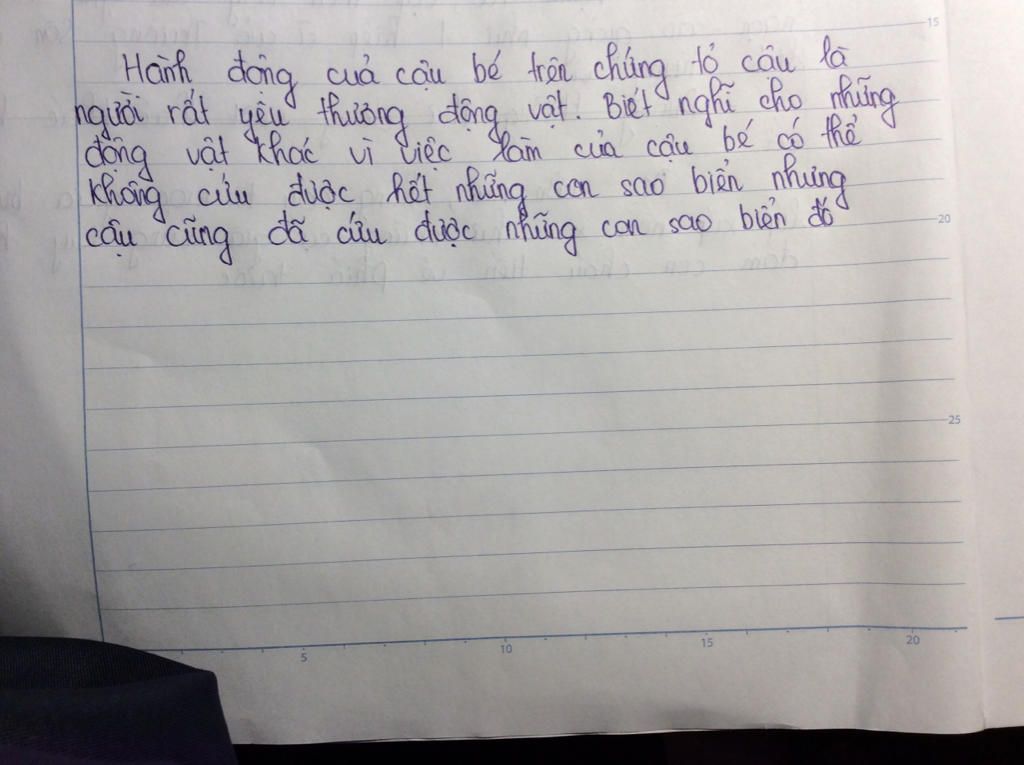 Hành động cuả cậu bé trên chứng tỏ câu là
người rất yêu thương động vật. Biết nghĩ cho những
động vật khác vì việc làm của cậu bé có thể
không cứu được hết những con sao biển nhưng
cậu cũng đã cứu được những con sao biển đó
15
20
25
5
10
15
20